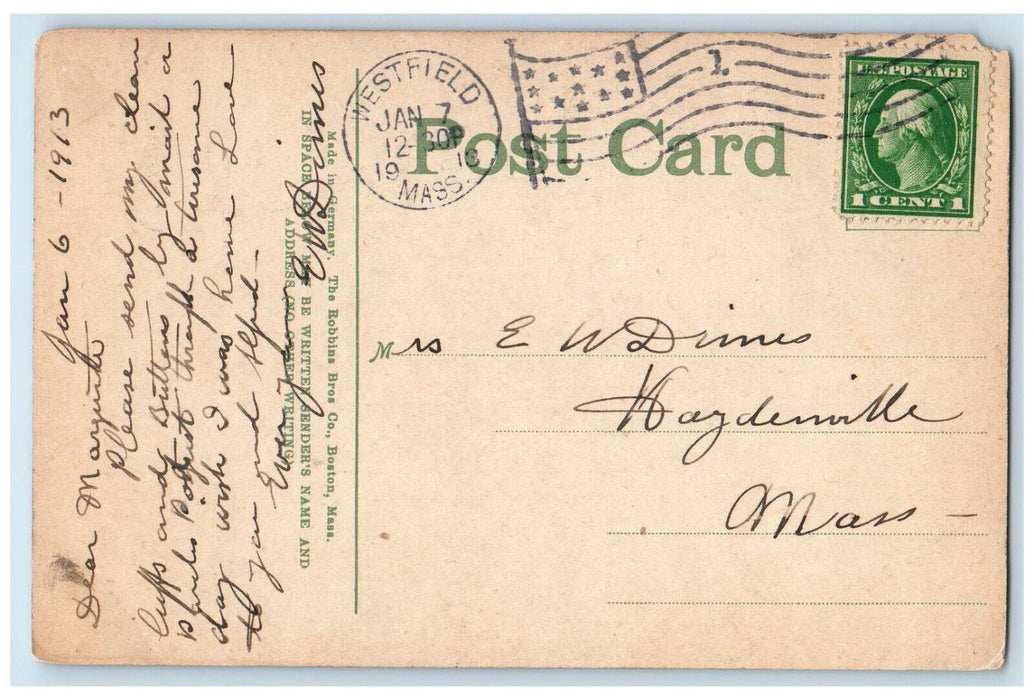 Jan 6 - 1913
Dear Marguerite
Please send my clean
Cuffs and Buttons by mail a
Parcels Post through a tiresome
day wish I was home Love
to you and Alfred -
Ever yours
E W Dimes
Made in Germany. The Robbins Bros Co., Boston, Mass.
IN SPACE BELOW MAY BE WRITTEN SENDER'S NAME AND
ADDRESS (NO OTHER WRITING)
WESTFIELD
JAN 7
12-30P
1913
MASS.
1
Post Card
U.S. POSTAGE
1 CENT 1
Mrs E W Dimes
Haydenville
Mass -